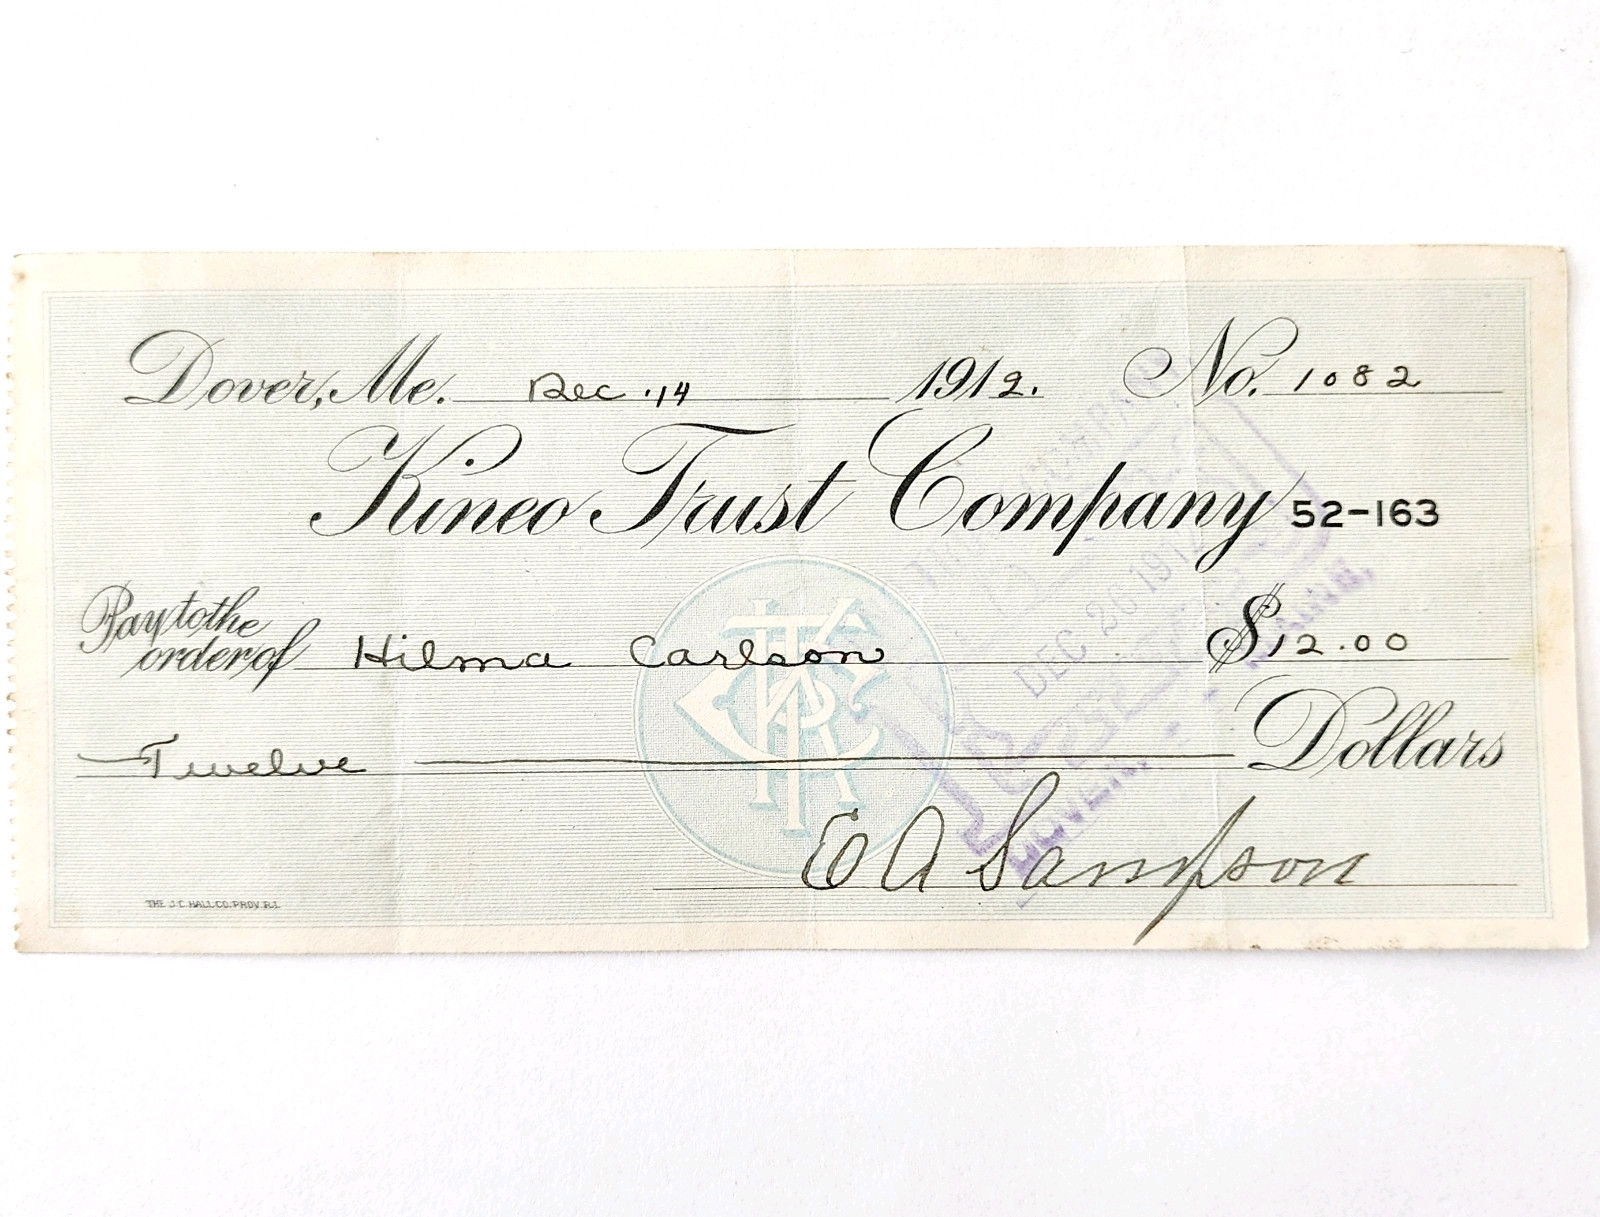 Dover, Me. Dec. 14 1912. No. 1082
Kineo Trust Company 52-163
Pay to the
order of Hilma Carlson $12.00
Twelve Dollars
E A Sampson
THE J.C. HALL CO. PROV. R.I.
COMPANY
DEC 26 191
DOVER, MAINE.